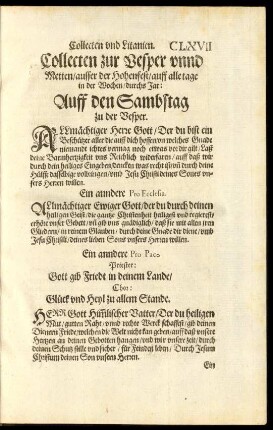 Collecten vnd Litanien. CLXVII
Collecten zur Vesper vnnd
Metten/ausser der Hohenfest/auff alle tage
in der Wochen/durchs Jar:
Auff den Sambstag
zu der Vesper.
ALlmächtiger Herre Gott/Der du bist ein
Beschützer aller die auff dich hoffen/on welches Gnade
niemandt ichtes vermag noch etwas vor dir gilt/Laß
deine Barmhertzigkeit vns Reichlich widerfaren/auff daß wir
durch dein heiliges Eingeben dencken was recht ist/vnd durch deine
Hülff dasselbige volbringen/vmb Jesu Christi deines Sones vn-
sers Herren willen.
Ein anndere Pro Ecclesia.
ALlmächtiger Ewiger Gott/der du durch deinen
heiligen Geist/die gantze Christenheit heiligest vnd regierest/
erhöre vnser Gebet/vñ gib vns gnädiglich/daß sie mit allen jren
Glidern/in reinem Glauben/durch deine Gnade dir diene/vmb
Jesu Christi/deines lieben Sons vnsers Herren willen.
Ein anndere Pro Pace.
Priester:
Gott gib Friedt in deinem Lande/
Chor:
Glück vnd Heyl zu allem Stande.
HERR Gott Himlischer Vatter/Der du heiligen
Mut/gutten Raht/vnnd rechte Werck schaffest/gib deinen
Dienern Friede/welchen die Welt nicht kan geben/auff daß vnsere
Hertzen an deinen Gebotten hangen/vnd wir vnsere zeit/durch
deinen Schutz stille vnd sicher/für Feinden leben/Durch Jesum
Christum deinen Son vnsern Herren.
Ein